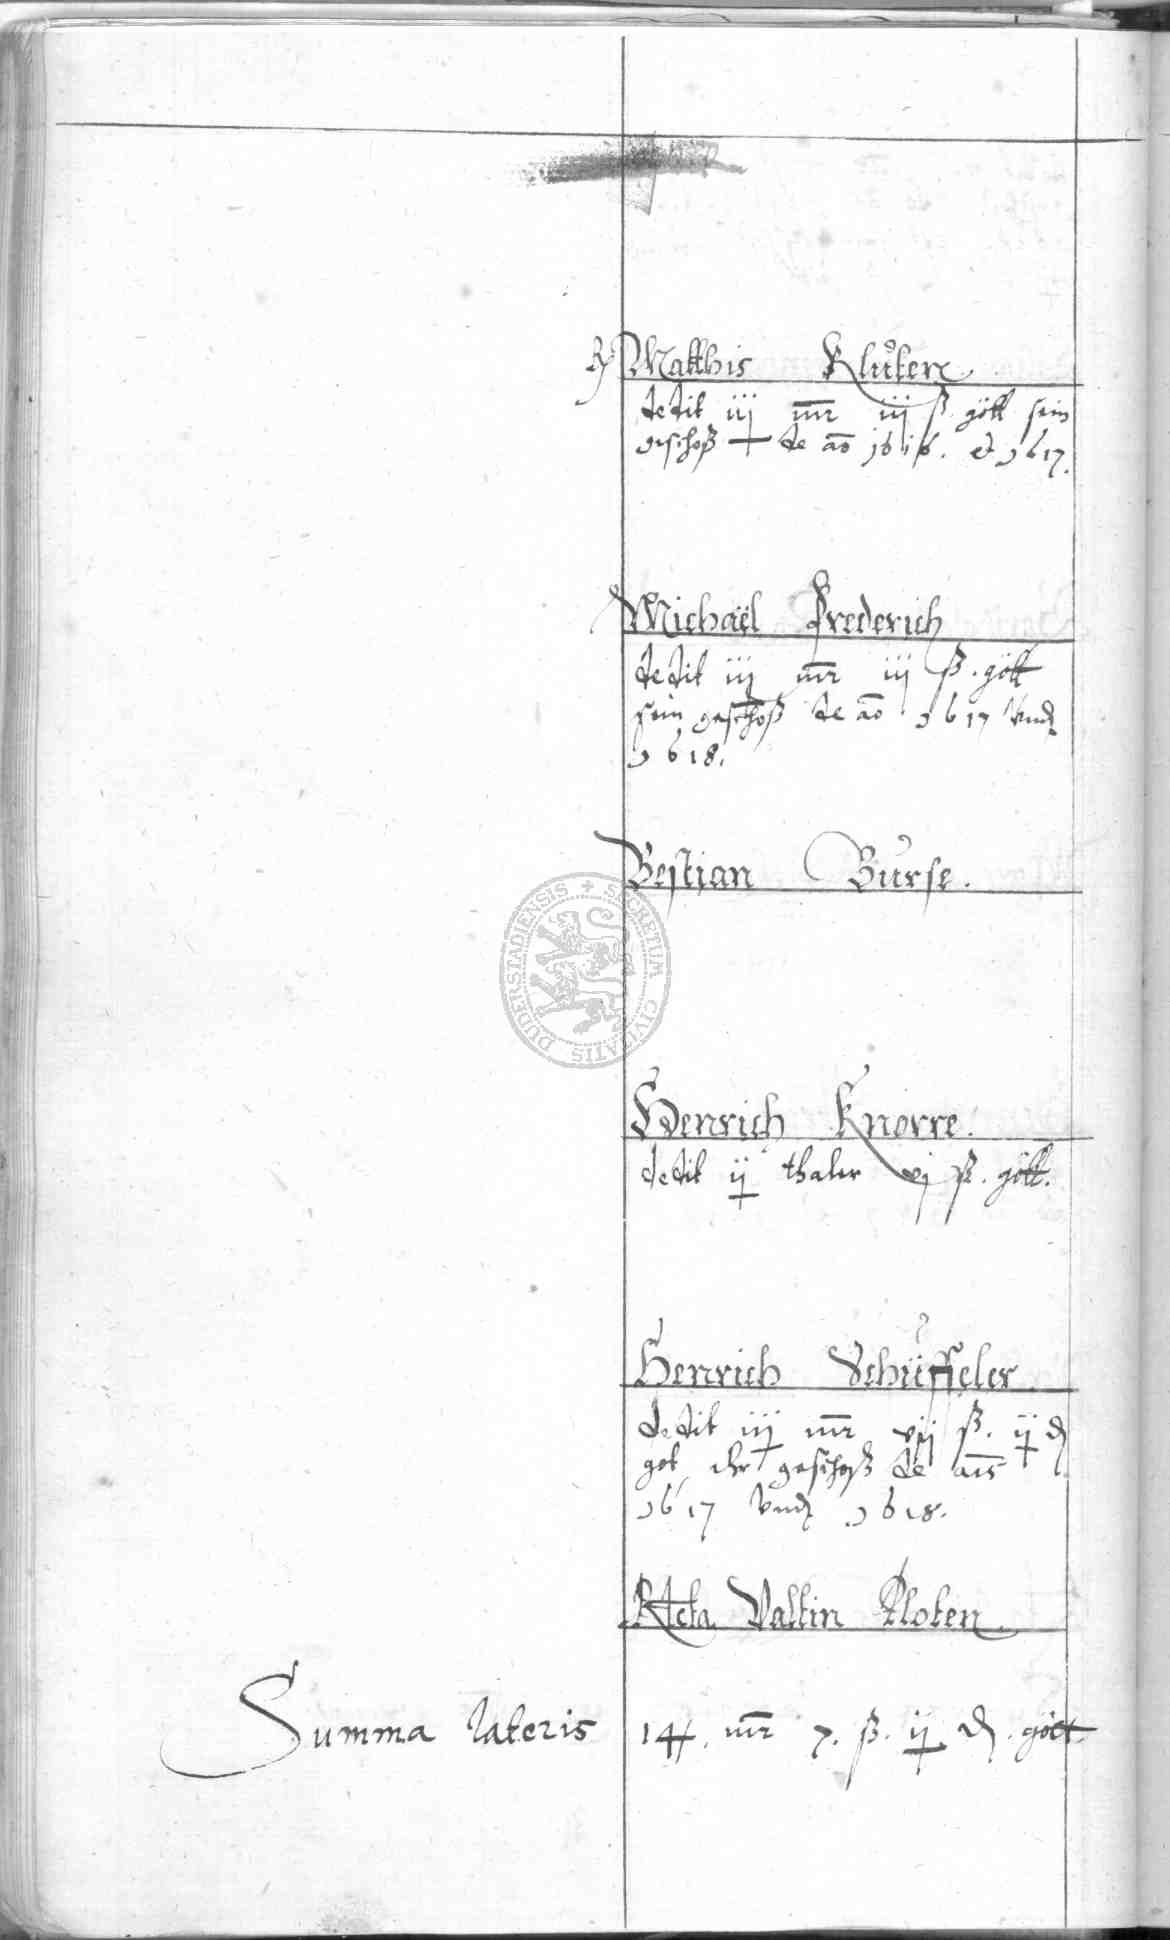 Matthis Klüter
dedit iij mr iij ß gött sein
geschoß de ao 1616. et 1617.
Michaël Frederich
dedit iij mr iij ß. gött
sein geschoß de ao 1617 vnd
1618.
Bestian Burse.
Henrich Knorre.
dedit ij thaler vj ß. gött.
Henrich Schüffeler
dedit iij mr vij ß. ij d
got ihr geschoß de ais
1617 vnd 1618.
Rcta Valtin Ploten
Summa lateris 14. mr 7. ß. ij d. gött
SECRETUM CIVITATIS DUDERSTADIENSIS